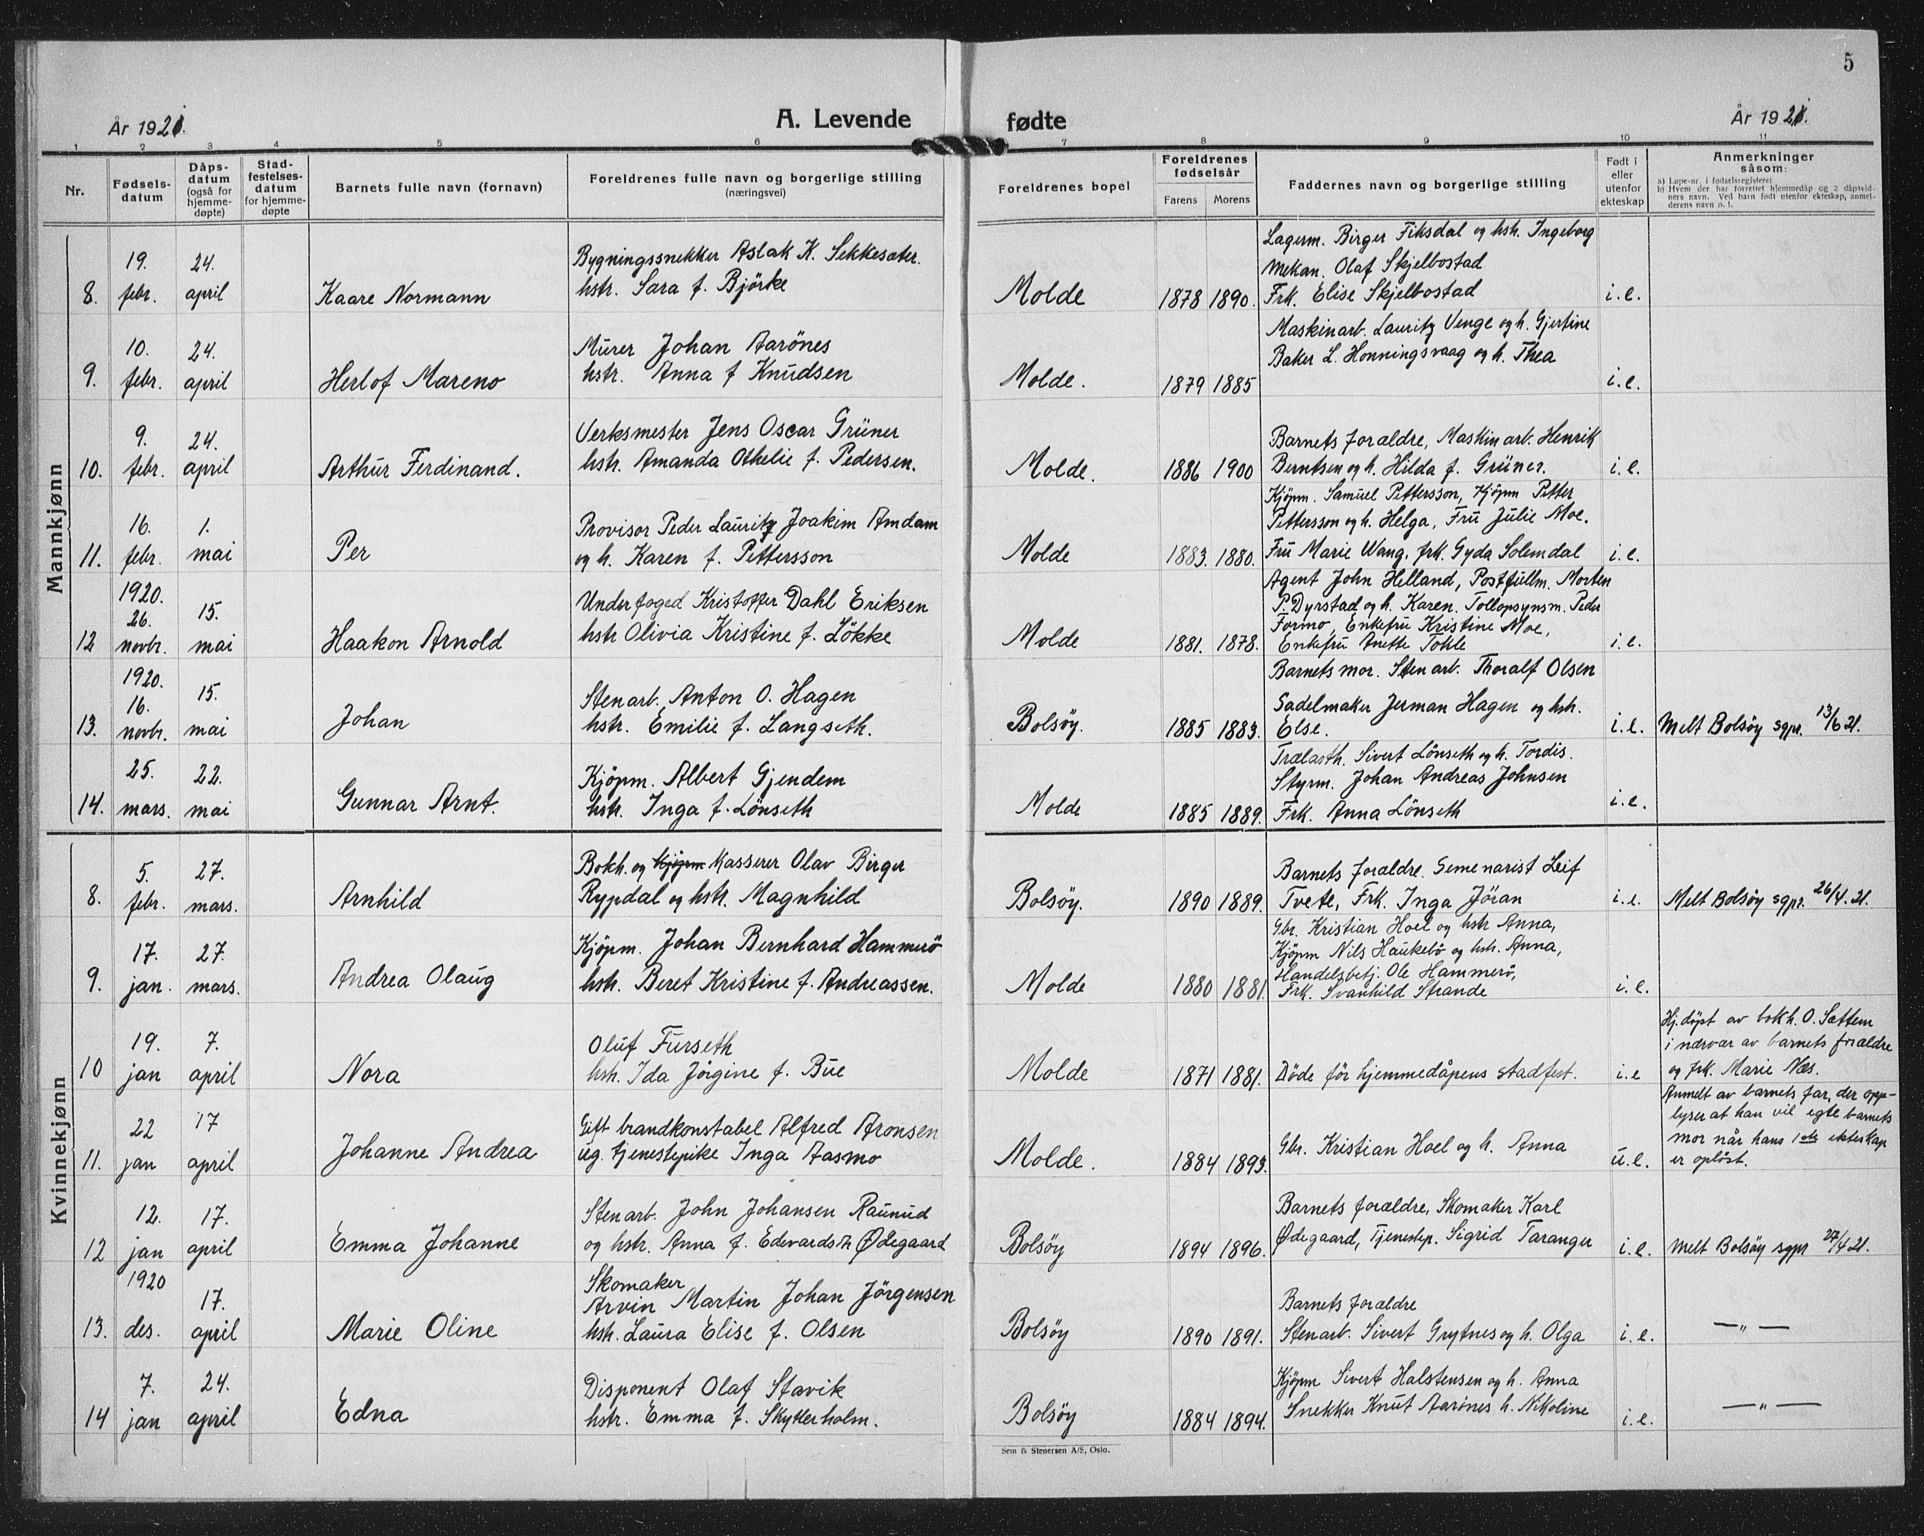 5
År 1921.
A. Levende
fødte
År 1921.
1 2 3 4 5 6 7 8 9 10 11
Nr.
Fødsels-
datum
Dåps-
datum
(også for
hjemme-
døpte)
Stad-
festelses-
datum
for hjemme-
døpte
Barnets fulle navn (fornavn)
Foreldrenes fulle navn og borgerlige stilling
(næringsvei)
Foreldrenes bopel
Foreldrenes
fødselsår
Farens Morens
Faddernes navn og borgerlige stilling
Født i
eller
utenfor
ekteskap
Anmerkninger
såsom:
a) Løpe-nr. i fødselsregisteret
b) Hvem der har forrettet hjemmedåp og 2 dåpsvid-
ners navn. Ved barn født utenfor ekteskap, anmel-
derens navn o. l.
Mannkjønn
8. 19. febr. 24. april Kaare Normann
Bygningssnekker Aslak K. Sekkesæter.
hstr. Sara f. Björke
Molde 1878 1890.
Lagerm. Birger Fiksdal og hstr. Ingeborg
Mekan. Olaf Skjelbostad
Frk. Elise Skjelbostad
i.e.
9. 10. febr. 24. april Herlof Mareno
Murer Johan Aarönes
hstr. Anna f Knudsen
Molde. 1879 1885
Maskinarb. Lauritz Venge og h. Gjertine
Baker L. Honningsvaag og h. Thea
i.e.
10. 9. febr. 24. april Arthur Ferdinand.
Verksmester Jens Oscar Grüner
hstr. Amanda Othelie f. Pedersen.
Molde. 1886 1900
Barnets forældre, Maskinarb. Henrik
Berntsen og h. Hilda f. Grüner.
i.e.
11. 16. febr. 1. mai Per
Provisor Peder Lauritz Joakim Amdam
og h. Karen f. Pettersson
Molde 1883. 1880.
Kjöpm. Samuel Pettersson, Kjöpm Petter
Pettersson og h. Helga, Fru Julie Moe.
Fru Marie Wang, frk. Gyda Solemdal
i.e.
12 1920. 26. novbr. 15. mai Haakon Arnold
Underfoged Kristoffer Dahl Eriksen
hstr Olivia Kristine f. Lökke
Molde 1881. 1878.
Agent John Helland, Postfullm. Morten
P. Dyrstad og h. Karen. Tollopsynsm. Peder
Formo, Enkefru Kristine Moe,
Enkefru Anette Tokle
i.e.
13. 1920. 16. novbr. 15. mai Johan
Stenarb. Anton O. Hagen
hstr. Emilie f. Langseth.
Bolsöy. 1885 1883.
Barnets mor. Stenarb. Thoralf Olsen
Sadelmaker Jerman Hagen og hstr.
Else.
i.e. Melt Bolsöy sgpr. 13/6 21.
14. 25. mars. 22. mai Gunnar Arnt.
Kjöpm. Albert Gjendem
hstr. Inga f. Lönseth
Molde 1885 1889.
Trælasth. Sivert Lönseth og h. Tordis.
Styrm. Johan Andreas Johnsen
Frk. Anna Lönseth
i.e.
Kvinnekjønn
8. 5. febr. 27. mars. Arnhild
Bokh. og Kjöpm Kasserer Olav Birger
Rypdal og hstr. Magnhild
Bolsöy. 1890 1889.
Barnets forældre. Semenarist Leif
Tvete, Frk. Inga Jöran
i.e. Melt Bolsöy sgpr. 26/4. 21.
9. 17. jan. 27. mars. Andrea Olaug
Kjöpm. Johan Bernhard Hammerö
hstr. Beret Kristine f. Andreassen.
Molde 1880 1881.
Gbr. Kristian Hoel og hstr Anna,
Kjöpm Nils Haukebö og hstr. Anna,
Handelsbetj. Ole Hammerö,
Frk. Svanhild Strande
i.e.
10 19. jan 7. april Nora
Oluf Furseth
hstr. Ida Jörgine f. Bue
Molde 1871 1881.
Döde för hjemmedåpens stadfest.
i.e
Hj.döpt av bokh. O. Sættem
i nærvær av barnets forældre
og frk. Marie Næs.
11. 22 jan 17 april Johanne Andrea
Gift brandkonstabel Alfred Aronsen
ug. tjenestepike Inga Aasmo
Molde. 1884 1893.
Gbr. Kristian Hoel og h. Anna
u.e.
Anmelt av barnets far, der opp-
lyser at han vil egte barnets
mor når hans 1ste ekteskap
er oplöst.
12 12. jan 17. april Emma Johanne
Stenarb. John Johansen Raunud
og hstr. Anna f. Edvardsdr. Ødegaard
Bolsöy 1894 1896.
Barnets forældre, Skomaker Karl
Ødegaard, Tjenestep. Sigrid Taranger
i.e. Melt Bolsöy sgpr 27/4 21.
13. 1920 des. 17. april Marie Oline
Skomaker
Arvin Martin Johan Jörgensen
hstr. Laura Elise f. Olsen
Bolsöy 1890 1891.
Barnets forældre
Stenarb. Sivert Grytnes og h. Olga
i.e. —„—
14 7. jan 24. april Edna
Disponent Olaf Stavik
hstr. Emma f. Skytterholm.
Bolsöy 1884 1894.
Kjöpm Sivert Halstensen og h. Anna
Snekker Knut Aarönes h. Nikoline
i.e. —„—
Sem & Stenersen A/S, Oslo.